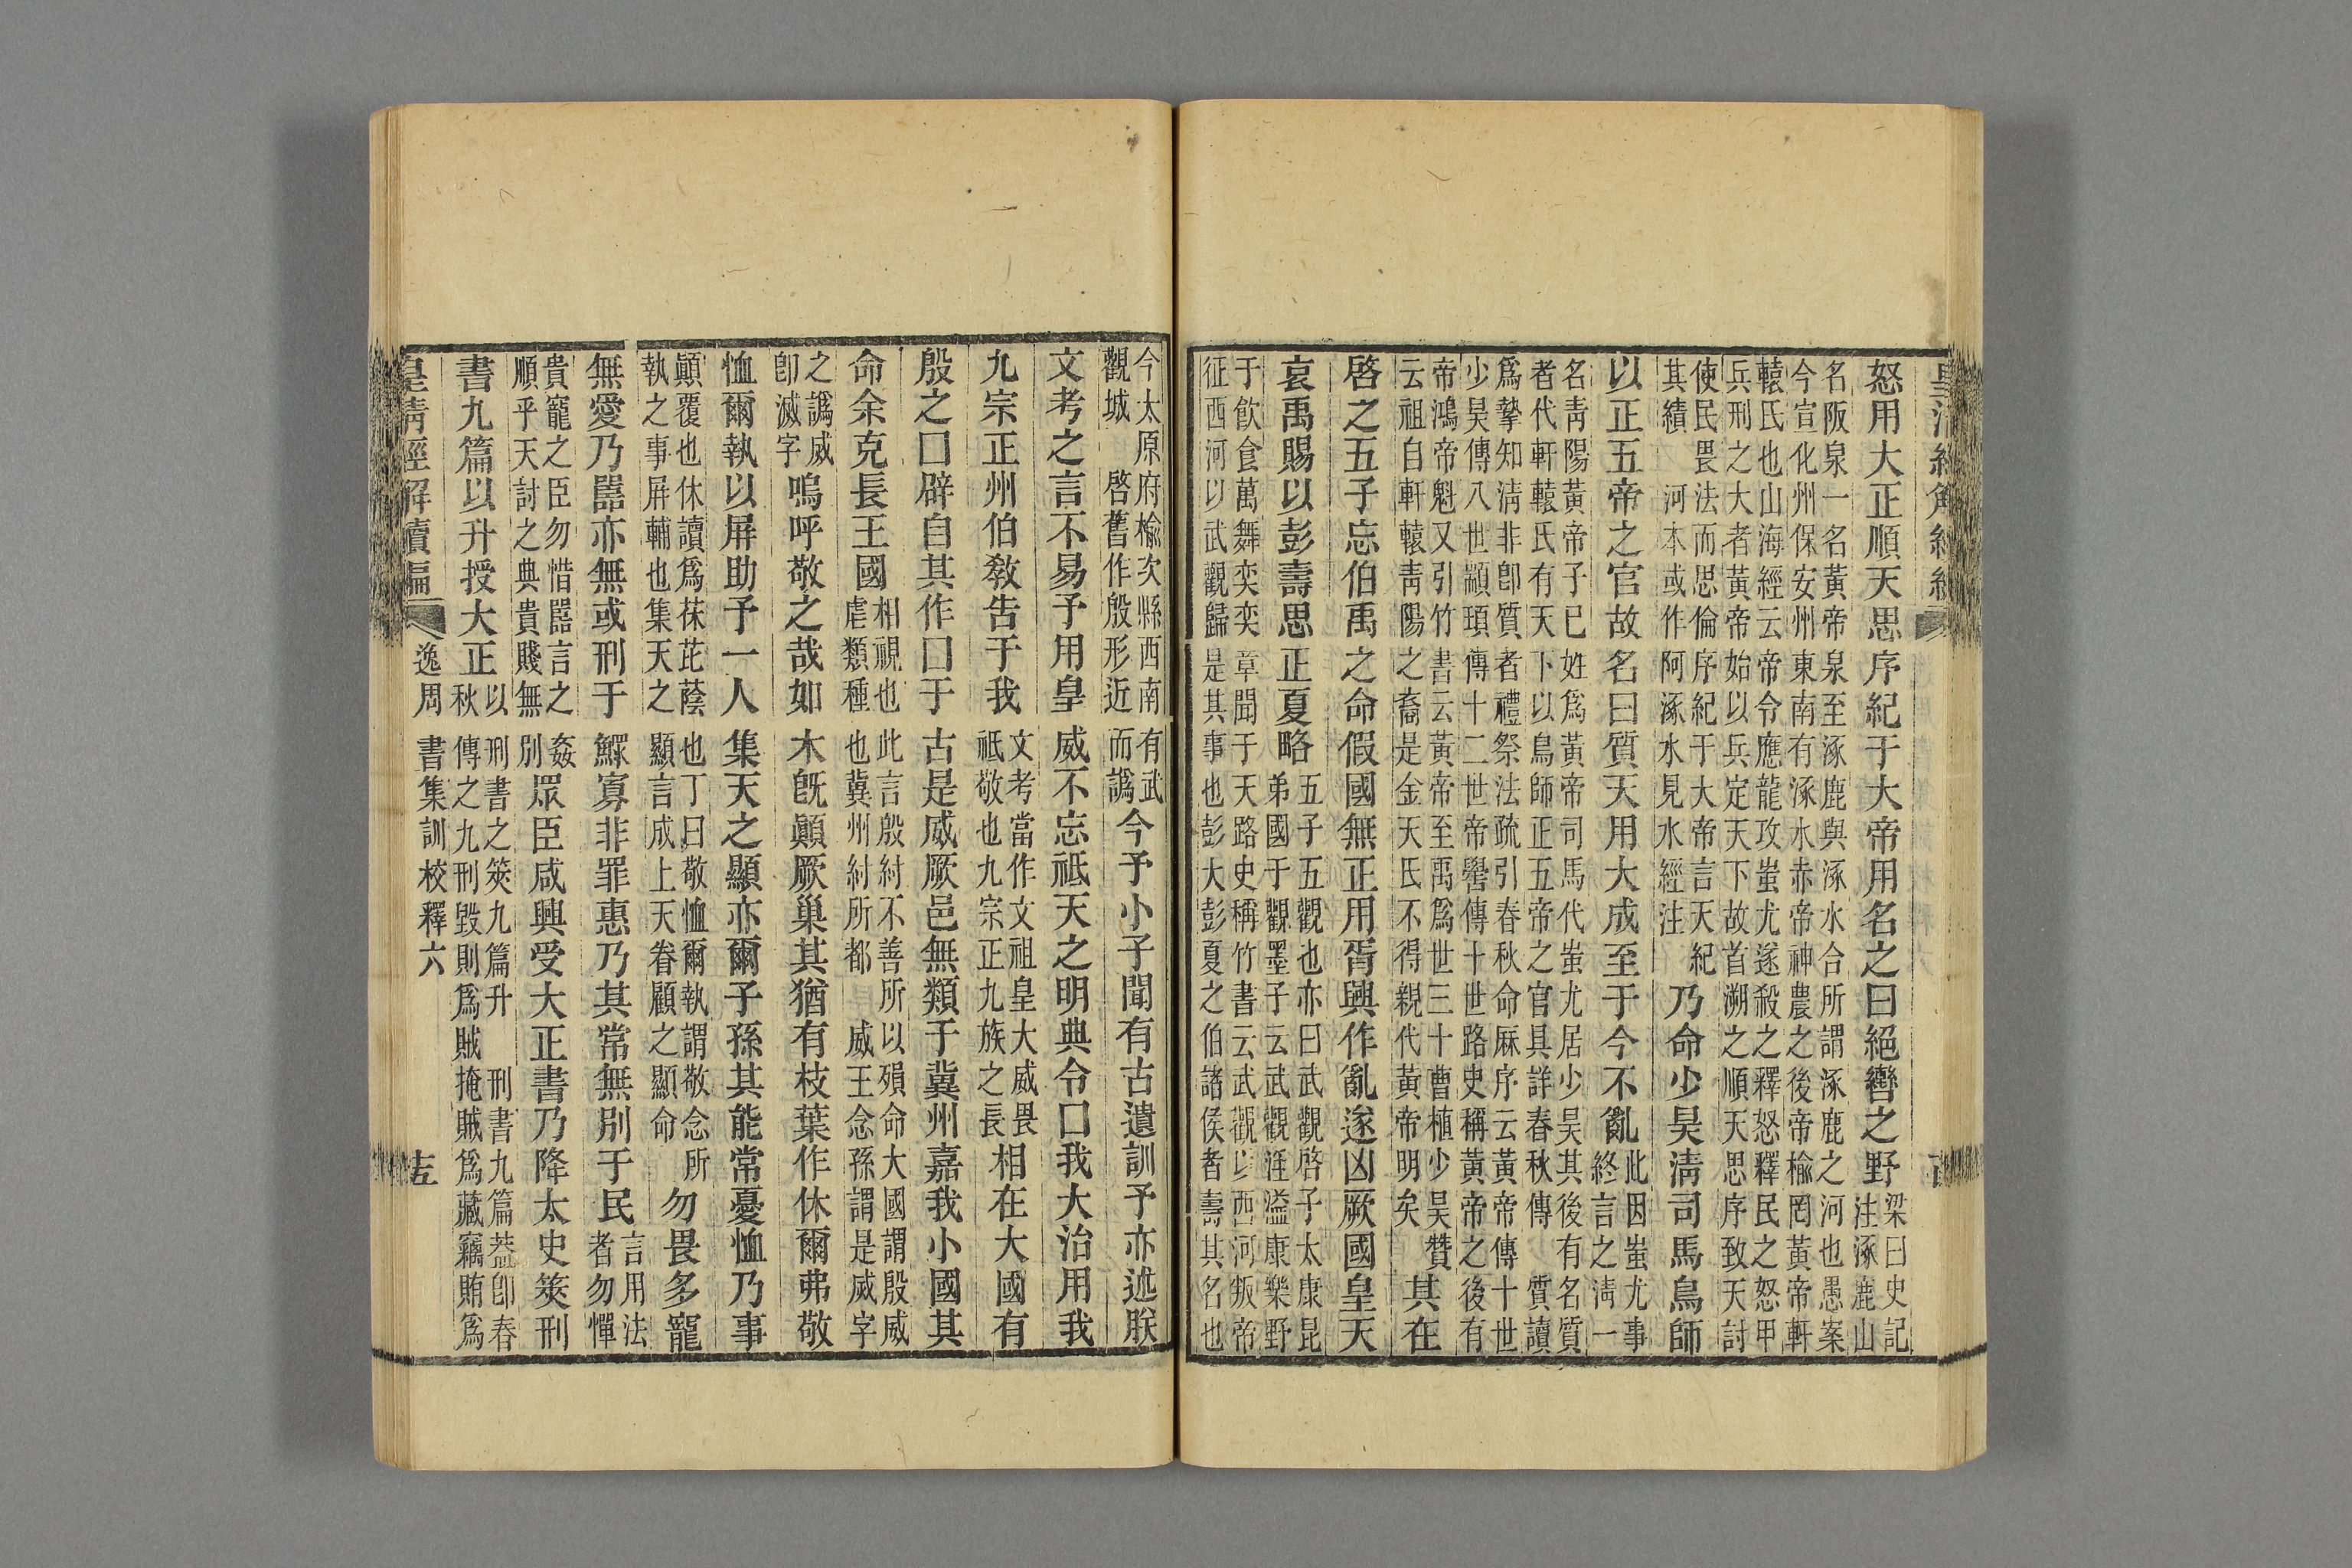 怒用大正順天思序紀于大帝用名之曰絕轡之野
梁曰史記
注涿鹿山
名阪泉一名黃帝泉至涿鹿與涿水合所謂涿鹿之河也愚案
今宣化州保安州東南有涿水赤帝神農之後帝榆罔黃帝軒
轅氏也山海經云帝令應龍攻蚩尤遂殺之釋怒釋民之怒甲
兵刑之大者黃帝始以兵定天下故首溯之順天思序致天討
使民畏法而思倫序紀于大帝言天紀
其績 河本或作阿涿水見水經注
乃命少昊清司馬鳥師
以正五帝之官故名曰質天用大成至于今不亂
此因蚩尤事
終言之清一
名青陽黃帝子已姓爲黃帝司馬代蚩尤居少昊其後有名質
者代軒轅氏有天下以鳥師正五帝之官具詳春秋傳 質讀
爲摯知清非卽質者禮祭法疏引春秋命厤序云黃帝傳十世
少昊傳八世顓頊傳十二世帝嚳傳十世路史稱黃帝之後有
帝鴻帝魁又引竹書云黃帝至禹爲世三十曹植少昊贊
云祖自軒轅青陽之裔是金天氏不得親代黃帝明矣
其在
啓之五子忘伯禹之命假國無正用胥興作亂遂凶厥國皇天
哀禹賜以彭壽思正夏略
五子五觀也亦曰武觀啓子太康昆
弟國于觀墨子云武觀淫溢康樂野
于飲食萬舞奕奕章聞于天路史稱竹書云武觀以西河叛帝
征西河以武觀歸是其事也彭大彭夏之伯諸侯者壽其名也
今太原府榆次縣西南有武
觀城 啓舊作殷形近而譌
今予小子聞有古遺訓予亦述朕
文考之言不易予用皇威不忘祗天之明典令囗我大治用我
九宗正州伯敎告于我
文考當作文祖皇大威畏
祗敬也九宗正九族之長
相在大國有
殷之囗辟自其作囗于古是威厥邑無類于冀州嘉我小國其
命余克長王國
相視也此言殷紂不善所以殞命大國謂殷威
虐類種也冀州紂所都 威王念孫謂是烕字
之譌烕
卽滅字
嗚呼敬之哉如木旣顚厥巢其猶有枝葉作休爾弗敬
恤爾執以屏助予一人集天之顯亦爾子孫其能常憂恤乃事
顚覆也休讀爲茠芘蔭也丁曰敬恤爾執謂敬念所
執之事屏輔也集天之顯言成上天眷顧之顯命
勿畏多寵
無愛乃嚚亦無或刑于鰥寡非罪惠乃其常無別于民
言用法
者勿憚
貴寵之臣勿惜嚚言之姦
順乎天討之典貴賤無別
眾臣咸興受大正書乃降太史筴刑
書九篇以升授大正
以刑書之筴九篇升 刑書九篇葢卽春
秋傳之九刑毀則爲賊 掩賊爲藏竊賄爲
皇清經解續編 逸周書集訓校釋六